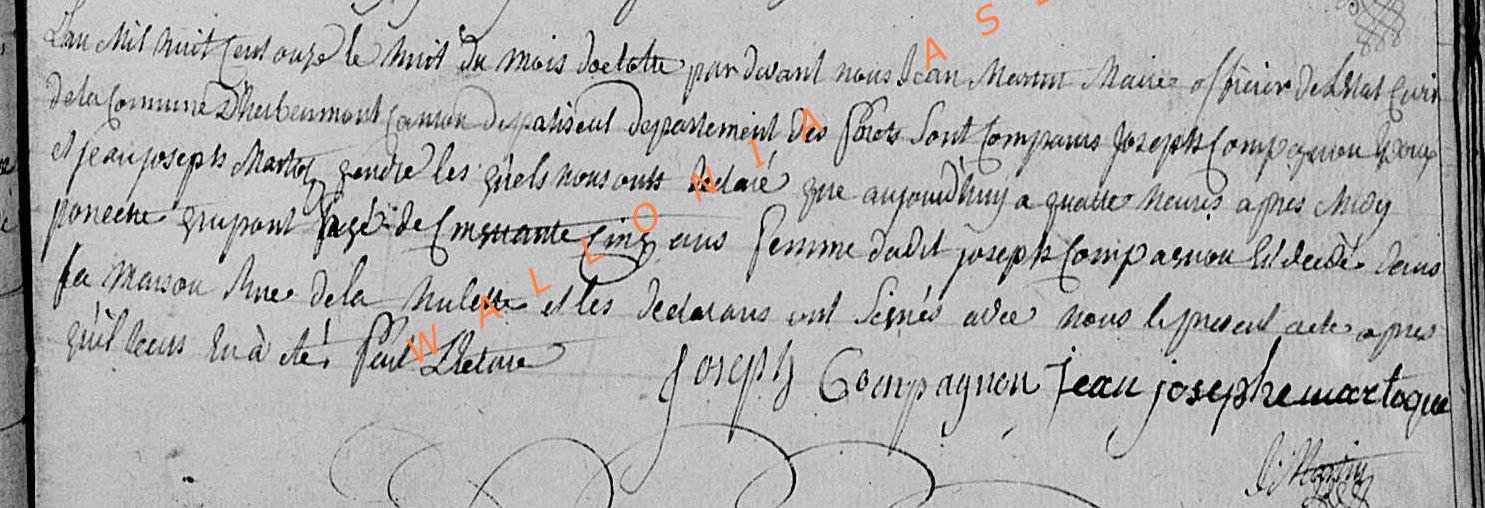 L'an Mil huit Cent onze le huit du mois doctobre par devant nous Jean Martin Maire officier de L'Etat Civil
de la Commune D'herbeumont Canton de paliseul departement des forets Sont Comparus Joseph Compagnon Epoux
et jean joseph Martoq gendre les quels nous ont declaré que aujourd'huy a quatre heures apres Midy
ponecte grupont agé de Cinquante Cinq ans femme dudit joseph Compagnon Est decedé dans
Sa Maison Rue de la hulette et les declarans ont Signés avec nous le present acte apres
qu'il leurs En à eté fait Lecture
Joseph Compagnon jean josephe martoque
J: Martin
WALLONIA AS